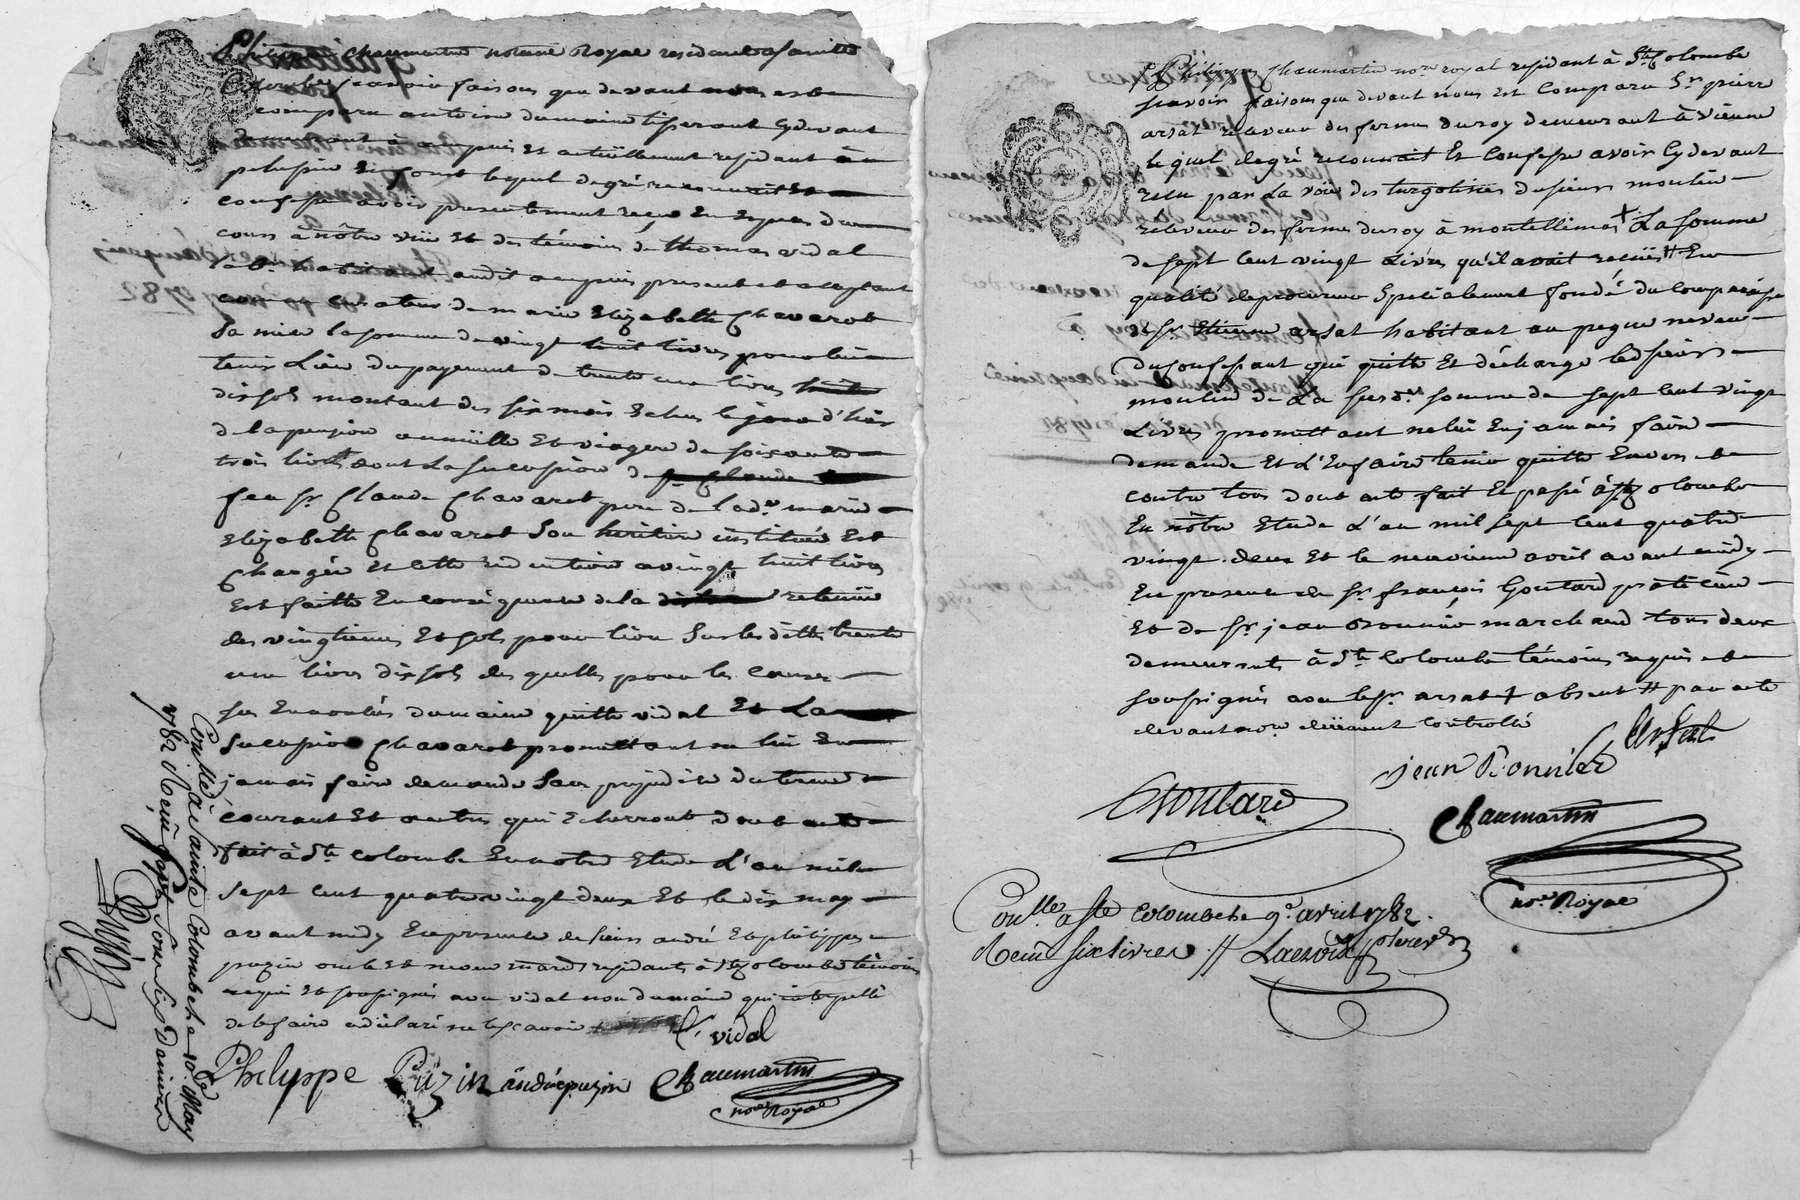 Philippe Chaumartin notaire Royal residant a sainte
Colombe sçavoir faisons que devant nous est
comparu antoine dumaine tisserant cy devant
demeurant à ampuis et actuellement residant à
pelussin en forest lequel de gré reconnait et
confesse avoir presentement reçu en espece du
cours à nôtre vüe et des témoins de thomas vidal
habitant audit ampuis present et acceptant
curateur de marie Elizabeth Chavarot
sa niece la somme de vingt huit livres pour lui
tenir Lieu du payement de trente une livres
dix sols montant des six mois echus le jour d'hier
de la pension annuelle et viagere de soixante
trois livres dont la succession de
feu sr Claude Chavarot pere de lade marie
Elizabeth Chavarot son heritiere instituée est
chargée et cette reduction a vingt huit livres
est faitte en consequence de la retenüe
des vingtiemes et sols pour livre sur lesdittes trente
une livres dix sols des quelles pour les causes
sus enoncées dumaine quitte vidal et La
succession Chavarot promettant ne lui en
jamais faire demande sans prejudice du terme
courant et autres qui echerront dont acte
fait à Ste colombe en notre Etude L'an mil
sept cent quatre vingt deux et le dix may
avant midy en presence de sieurs andré et philippe
puzin oncle et neveu mards residants à Ste Colombe témoins
requis et soussignés avec vidal non dumaine qui interpellé
de le faire a déclaré ne le sçavoir
vidal
Philippe Puzin andré puzin Chaumartin
nore Royal
Conllé a Sainte Colombe le 10e May
1782 Reçu
Philippe Chaumartin nore royal residant à Ste Colombe
sçavoir faisons que devant nous est Comparu Sr pierre
arsat receveur des fermes du roy demeurant à viênne
lequel de gré reconnait et Confesse avoir cy devant
reçu par La voie des turgotines du sieur moulin
receveur des fermes du roy à montellimar + La somme
de sept cent vingt Livres qu'il avait reçües # En
qualité de procureur specialement fondé du comparaissant
et sr Etienne arsat habitant au pegue neveu
du confessant qui quitte et décharge led sieur
moulin de La susde somme de sept cent vingt
Livres promettant ne lui en jamais faire
demande et L'en faire tenir quitte envers et
contre tous dont acte fait et passé à Ste Colombe
En nôtre Etude L'an mil sept cent quatre
vingt deux et le neuvieme avril avant midy
En presence de sr françois Goutard praticien
et de sr jean Bonnier marchand tous deux
demeurants à Ste Colombe témoins requis et
soussignés avec le sr arsat + absent # par acte
devant nore düement controllé
Arsat
jean Bonnier
Goutard
Chaumartin
nore Royal
Conllé a Ste Colombe le 9e avril 1782.
Recu six livres // Lacroix